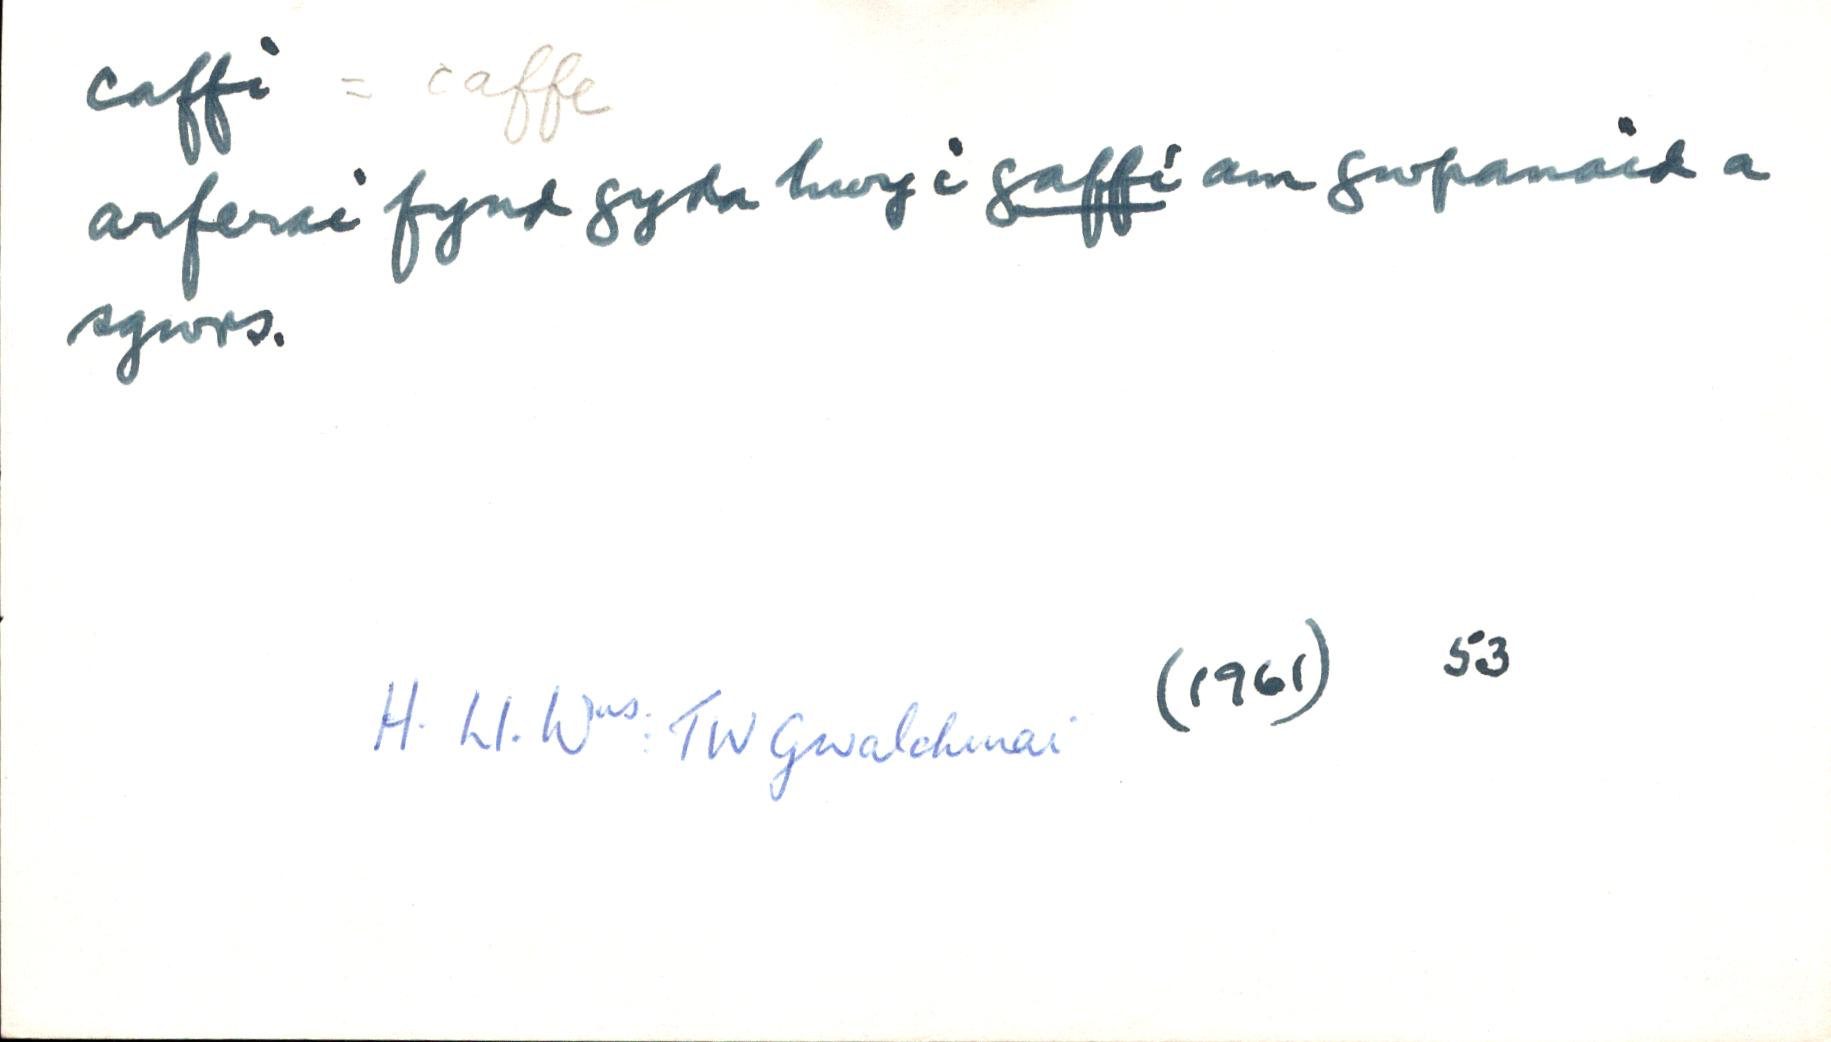 caffi = caffe
arferai fynd gyda hwy i gaffi am gwpanaid a
sgwrs.
(1961) 53
H. Ll. Wms: TW Gwalchmai